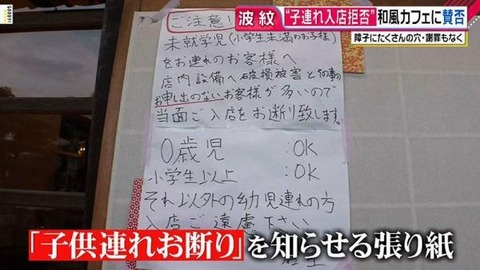 波紋
"子連れ入店拒否"和風カフェに賛否
障子にたくさんの穴・謝罪もなく
ご注意!
未就学児(小学生未満のお子様)
をお連れのお客様へ
店内設備へ破損被害と何事の
お申出のないお客様が多いので
当面ご入店をお断り致します。
0歳児 :OK
小学生以上 :OK
それ以外の幼児連れの方
入店ご遠慮下さい
「子供連れお断り」を知らせる張り紙